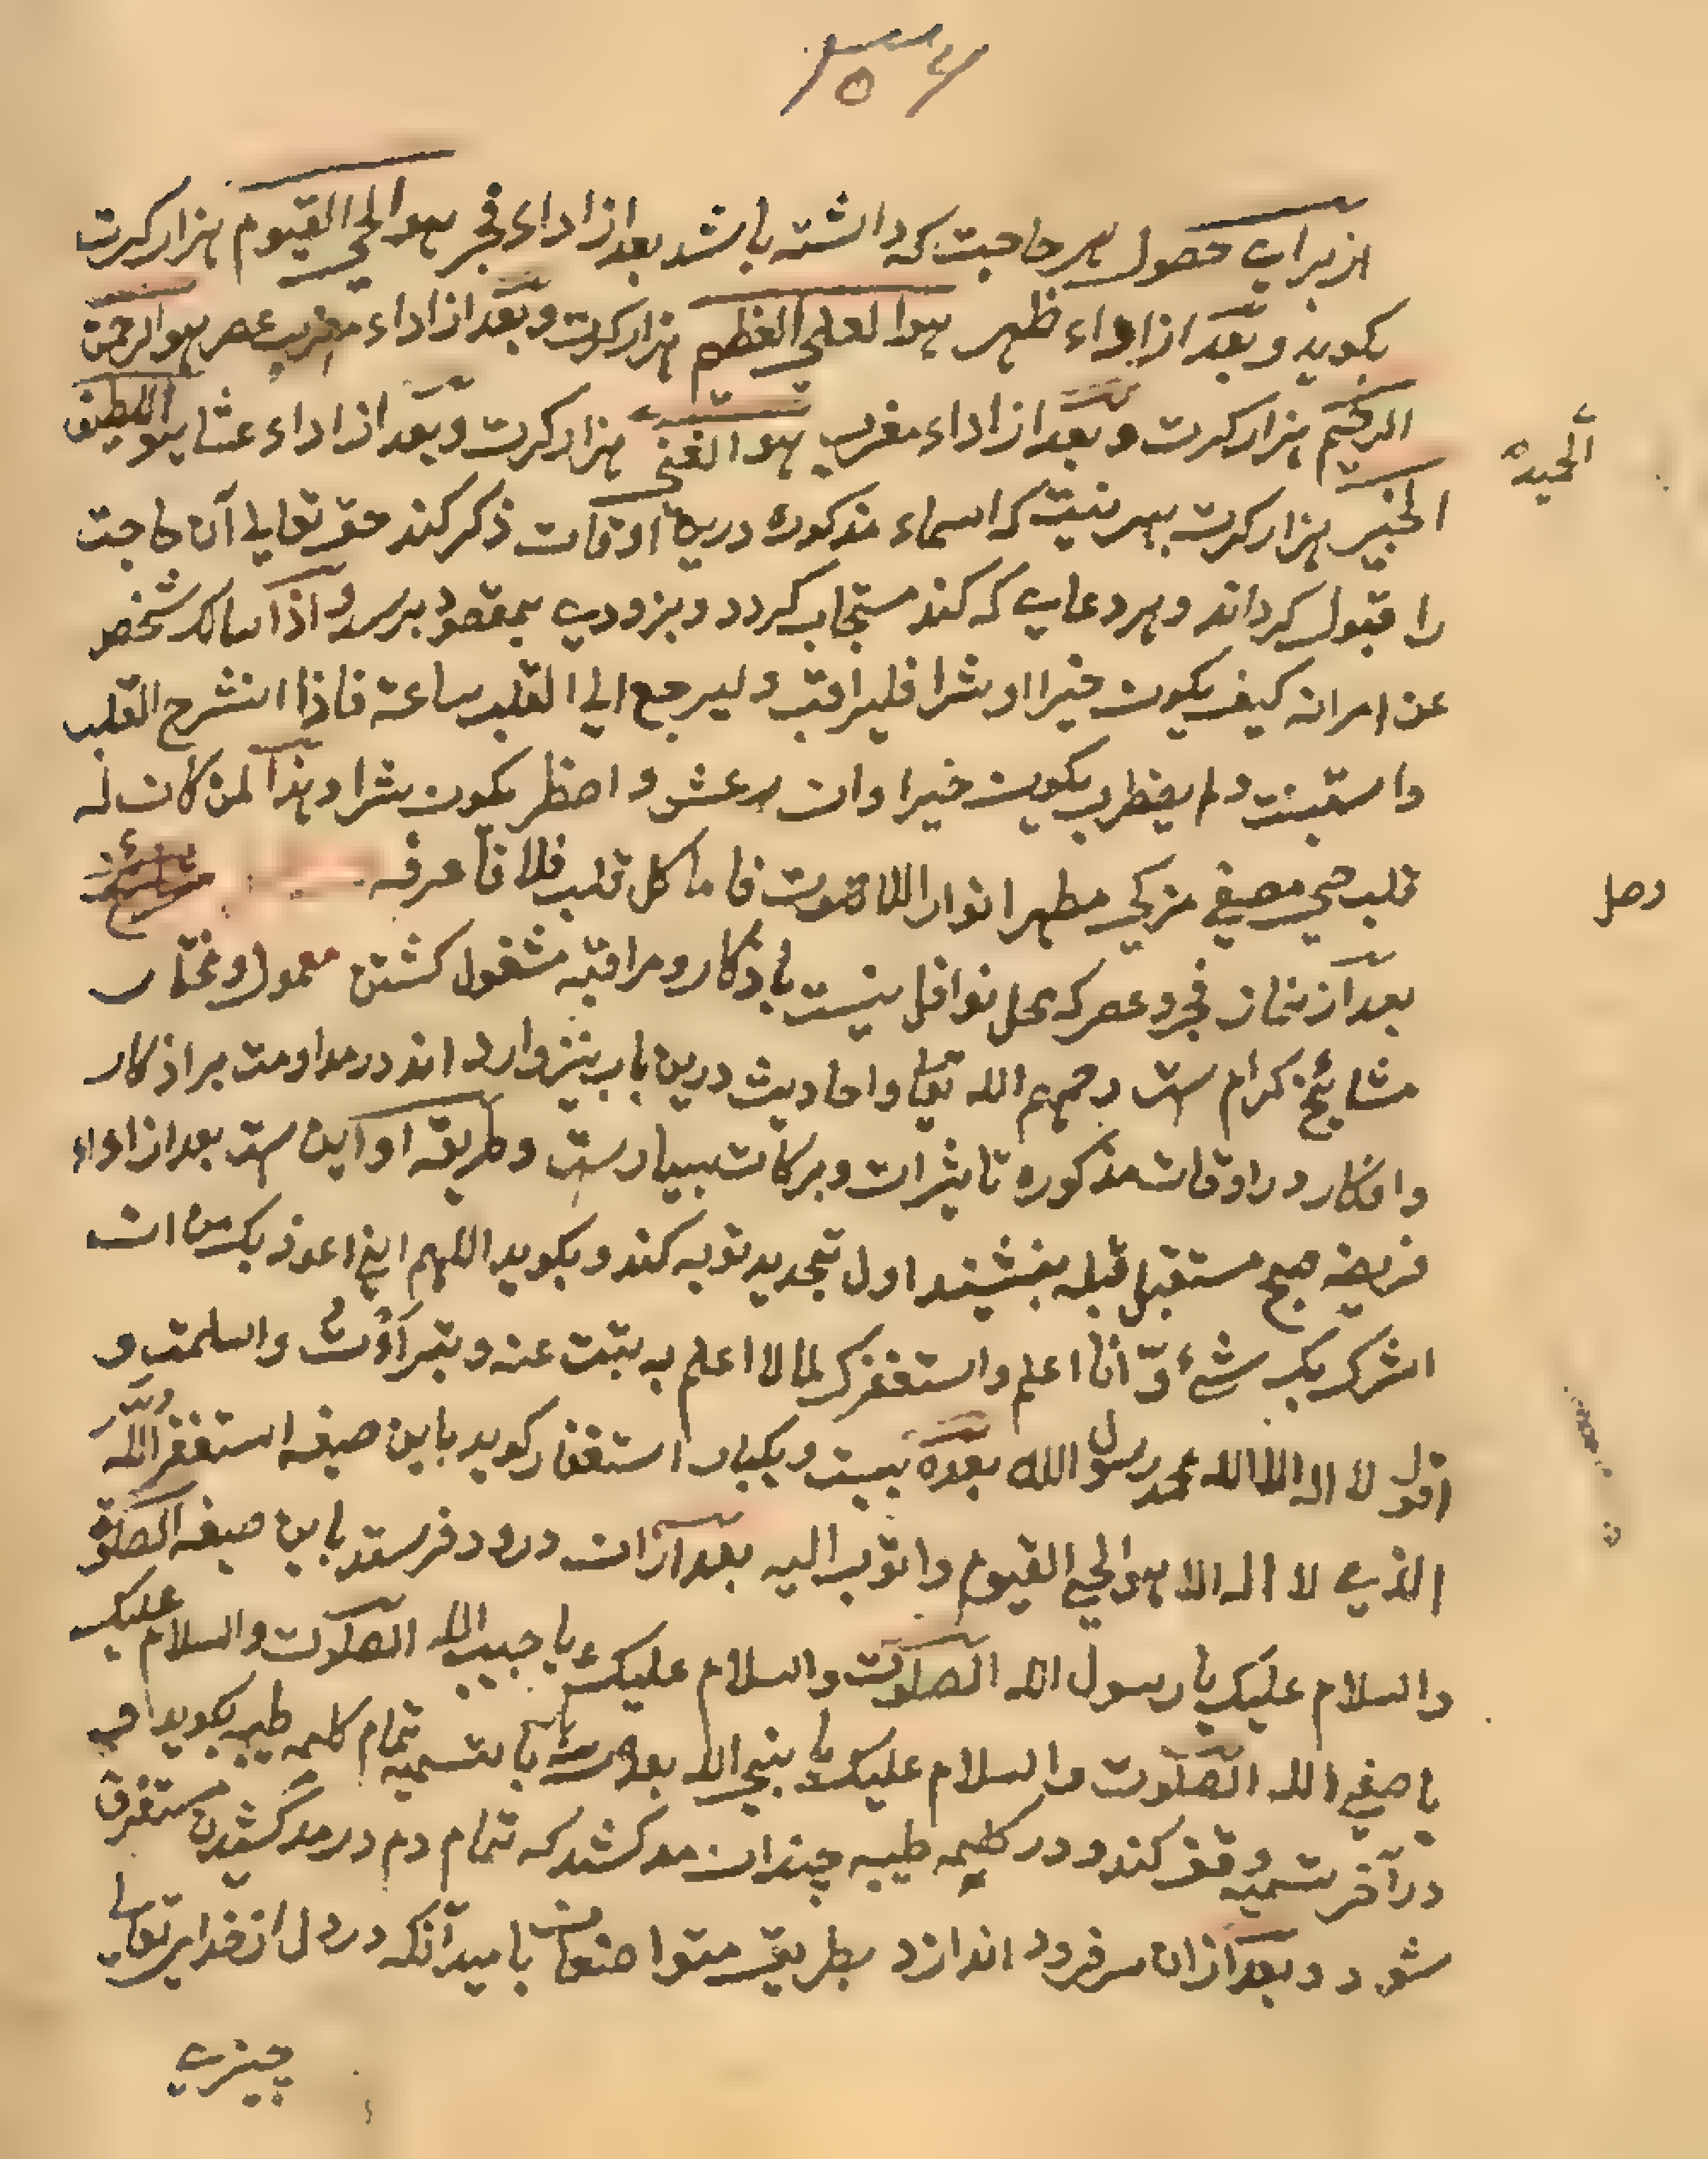 از براے حصول ہر حاجت کہ داشتہ باشد بعد از اداء فجر ہو الحی القیوم ہزار کرت
بکوید و بعد از اداء ظہر ہو العلی العظیم ہزار کرت و بعد از اداء عصر ہو الرحمن
الرحیم ہزار کرت و بعد از اداء مغرب ہو الغنی ہزار کرت و بعد از اداء عشا ہو اللطیف
الحمید
الخبیر ہزار کرت بہر نیت کہ اسماء مذکورہ درین اوقات ذکر کند حق تعالی آن حاجت
را قبول کرداند و ہر دعایے کہ کند مستجاب کردد و بزودے بمقصود برسد و اذا سالک شخص
عن امر انہ کیف یکون خیرا او شرا فلیراقب و لیرجع الی القلب ساعة فاذا انشرح القلب
و لم یضطرب یکون خیرا وان و اضطر یکون شرا و ہذا لمن کان لہ
قلب حی مصفی مزکی مطہر انوار اللاہوت فاما کل قلب فلا فاعرفہ
وصل
بعد از نماز فجر و عصر کہ محل نوافل نیست باذکار و مراقبہ مشغول کشتن معمول و مختار
مشایخ کرام ست رحمہم اللہ تعالی و احادیث درین باب نیز وارد اند در مداومت بر اذکار
و افکار در اوقات مذکورہ تاثیرات و برکات بسیار ست و طریقہ او این ست بعد از اداء
فریضہ صبح مستقبل قبلہ بنشیند اول تجدید توبہ کند و بکوید اللہم انی اعوذ بک من ان
اشرک بک شیئ و انا اعلم و استغفرک لما لا اعلم بہ تبت عنہ و تبرأت و اسلمت و
اقول لا الہ الا اللہ محمد رسول اللہ بعدہ بیست و یکبار استغفار کوید باین صیغہ استغفر اللہ
الذی لا الہ الا ہو الحی القیوم و اتوب الیہ بعد ازان درود فرستد باین صیغہ الصلوة
و السلام علیک یا رسول اللہ الصلوت و السلام علیک یا حبیب اللہ الصلوت و السلام علیک
یا صفی اللہ الصلوت و السلام علیک یا نبی اللہ بعد با تسمیہ تمام کلمہ طیبہ بکوید
در آخر تسمیہ وقف کند و در کلیمہ طیبہ چندان مد کشد کہ تمام دم در مد کشیدن مستغرق
شود و بعد ازان سر فرود اندازد بطریق متواضعان بامید آنکہ در دل از خداے تعالی
چیزے